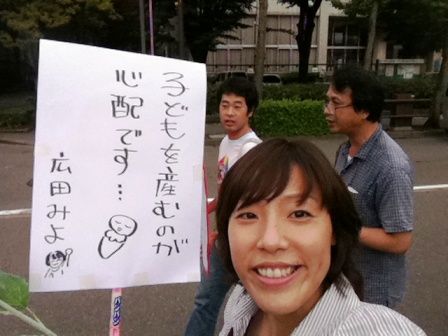 子どもを産むのが
心配です…
広田みよ